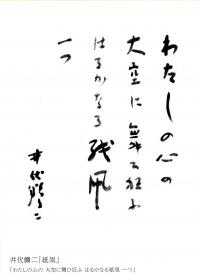 わたしの心の
大空に舞ひ狂ふ
はるかなる紙凧
一つ
井伏鱒二
井伏鱒二「紙凧」
「わたしの心の 大空に舞ひ狂ふ はるかなる紙凧 一つ」